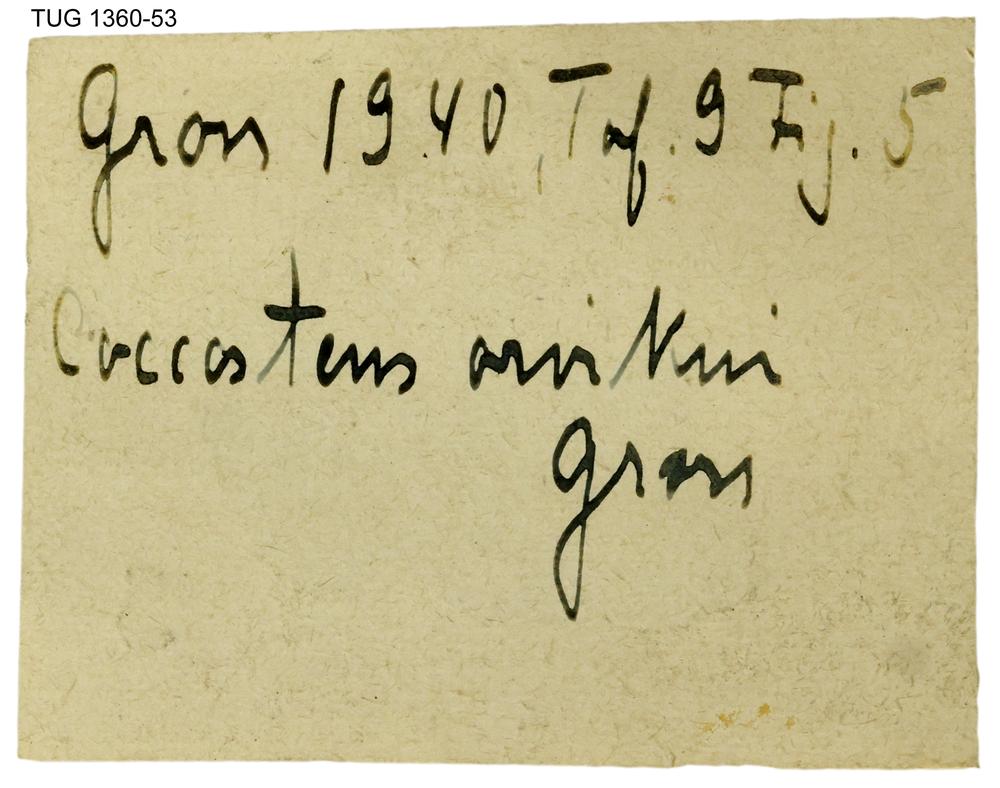 TUG 1360-53
Gross 1940, Taf. 9 Fig. 5
Coccosteus orvikui
Gross